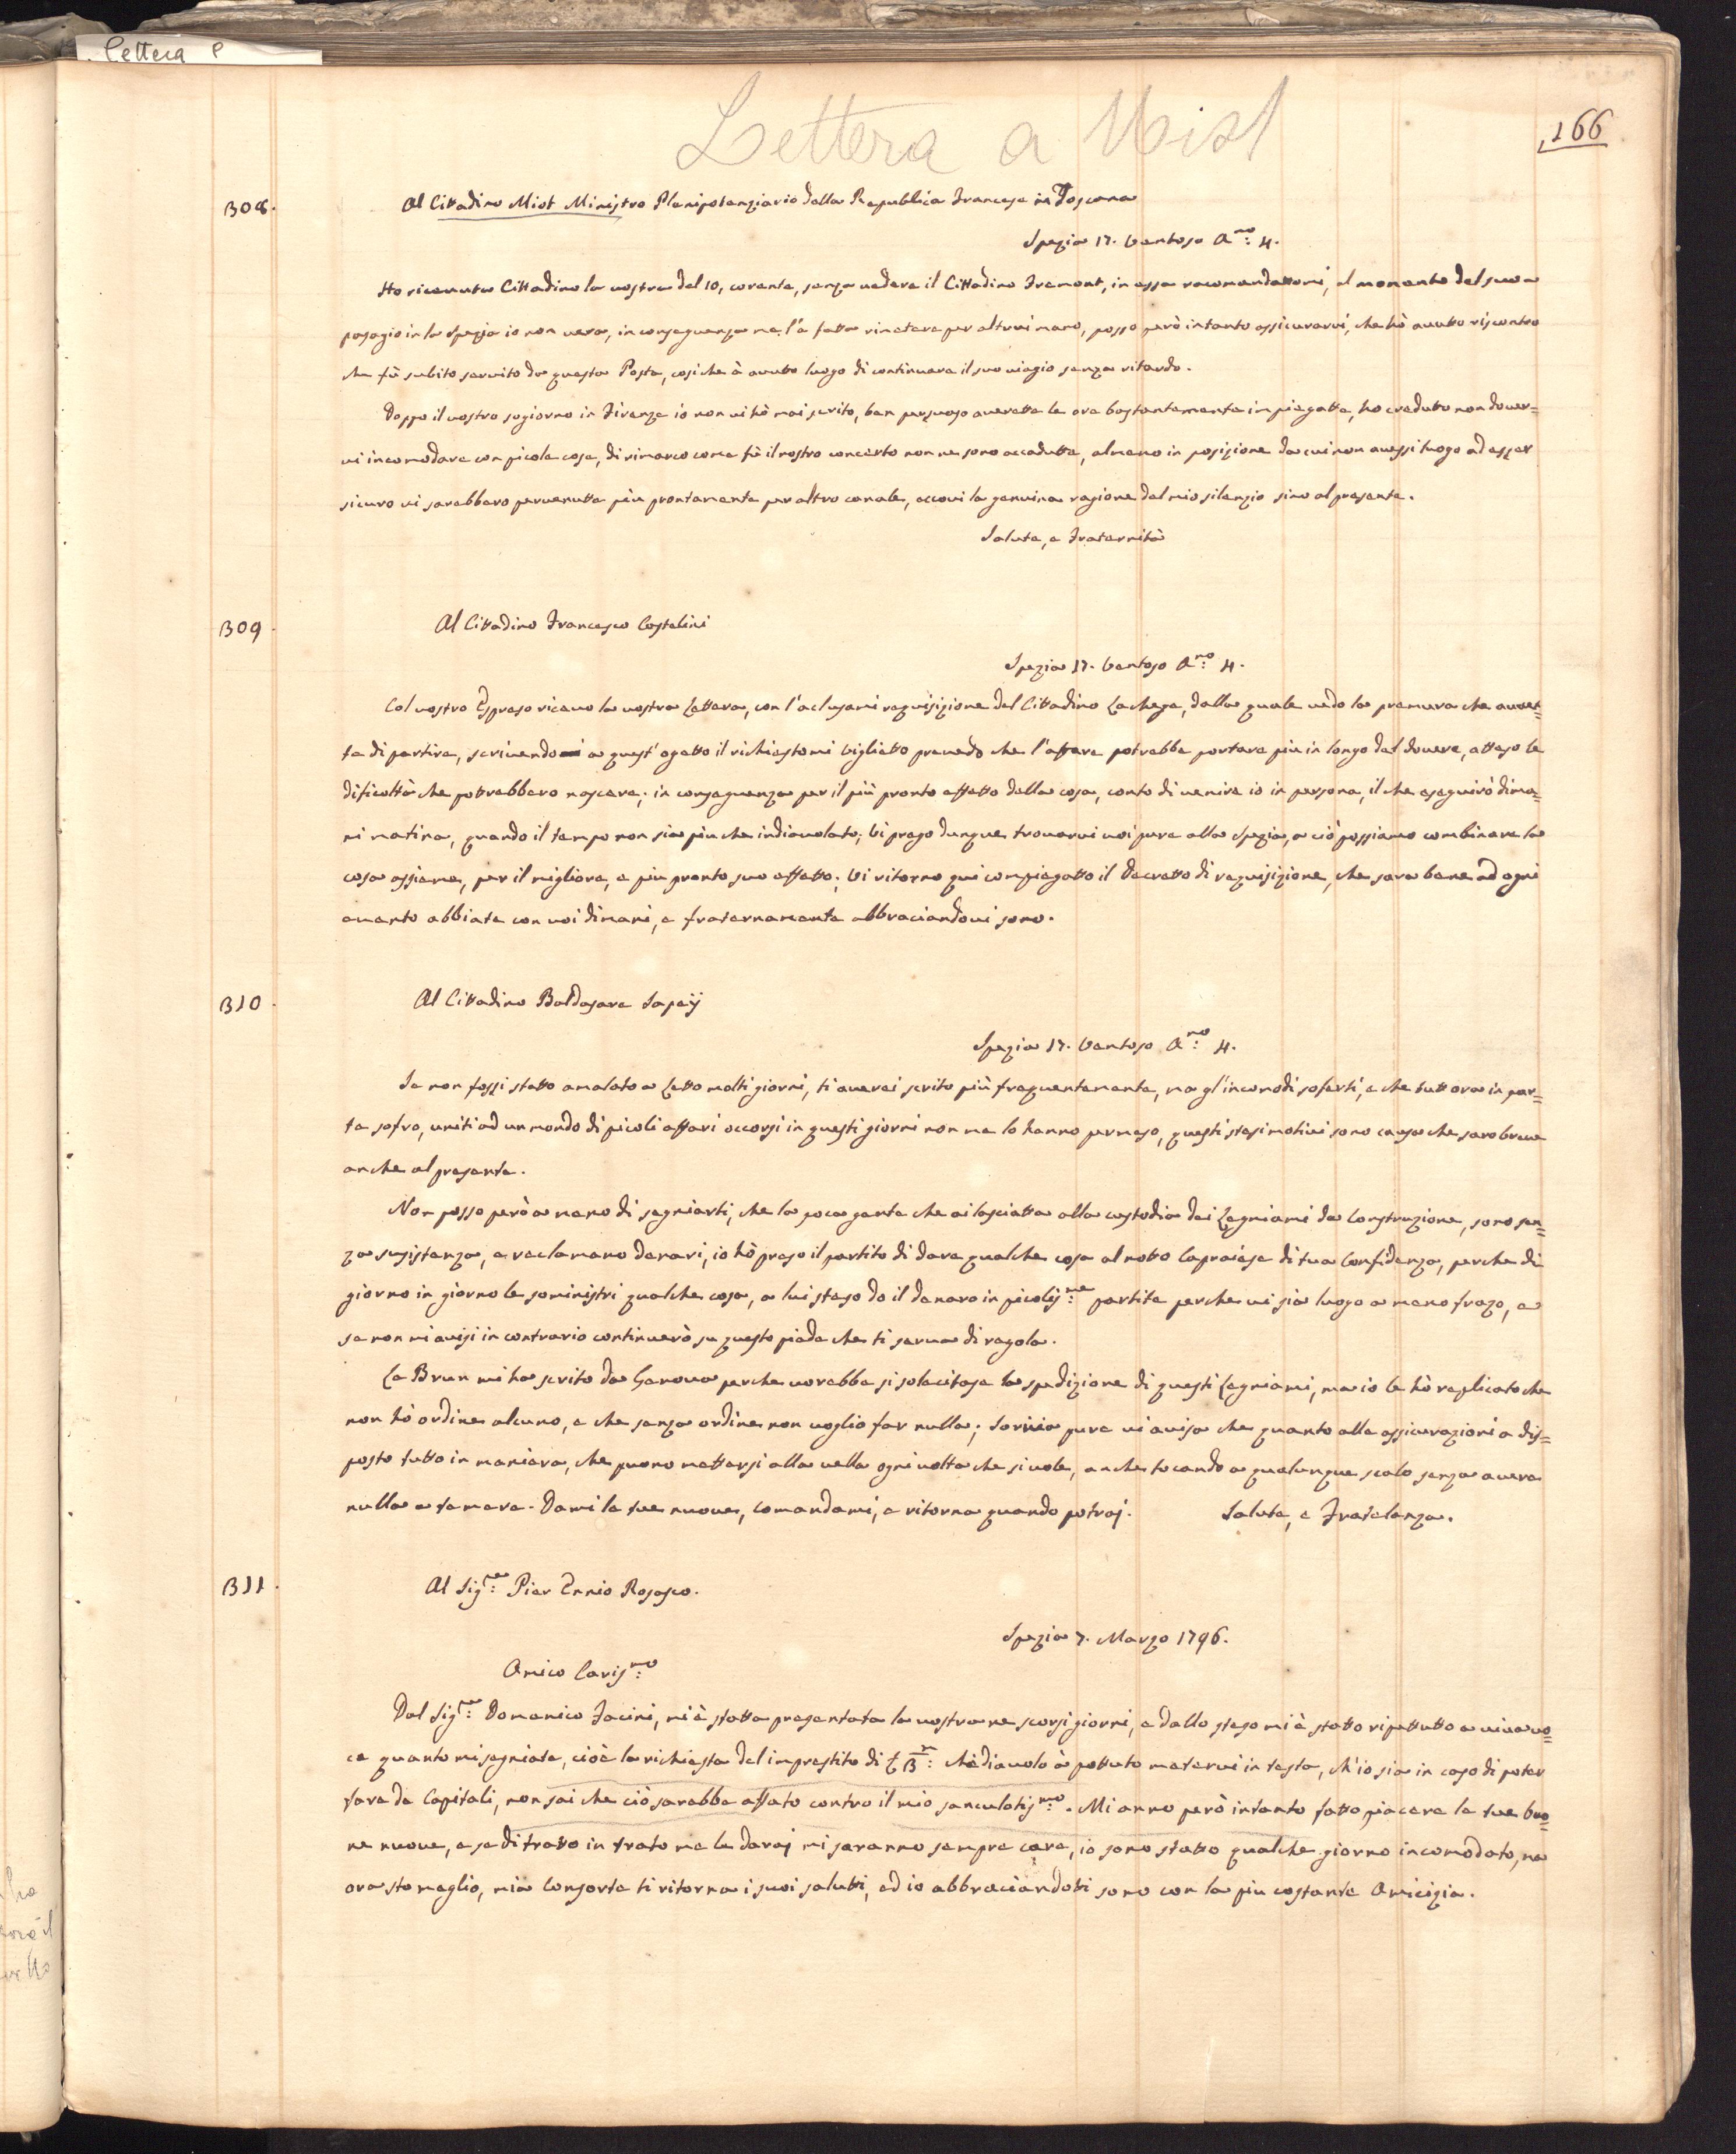 Lettera
Lettera a Miot
166
308.
Al Cittadino Miot Ministro Plenipotenziario della Republica Francese in Toscana
Spezia 17. Ventoso A.no 4.
Ho ricevuta Cittadino la vostra del 10, corente, senza vedere il Cittadino Fremont, in essa racomandattomi, al momento del suo
pasagio in la Spezia io non vera, in conseguenza me l'a fatta rimetere per altrui mano, posso però intanto assicurarvi, che hò avutto riscontro
che fù subito servito da questa Posta, cosiche à avutto luogo di continuare il suo viagio senza ritardo.
Doppo il vostro sogiorno in Firenze io non vi hò mai scrito, ben persuaso averette le ore bastantemente impiegatte, ho credutto non dover=
vi incomodare con picole cose, di rimarco come fù il nostro concerto non ne sono accadutte, almeno in posizione da cui non avessi luogo ad esser
sicuro vi sarebbero pervenutte più prontamente per altro canale, eccovi la genuina ragione del mio silenzio sino al presente.
Salute, e Fraternità
309.
Al Cittadino Francesco Costelini
Spezia 17. Ventoso A.no 4.
Col vostro Espreso ricevo la vostra Lettera, con l'aclusami requisizione del Cittadino Lachege, dalla quale vedo la premura che avret=
te di partire, scrivendo a quest'ogetto il richiestomi viglietto prevedo che l'affare potrebbe portare più in longo del dovere, atteso le
dificoltà che pottrebbero nascere; in conseguenza per il più pronto effetto della cosa, conto di venire io in persona, il che eseguirò dima=
ni matina, quando il tempo non sia più che indiavolato; Vi prego dunque trovarvi voi pure alla Spezia, a ciò possiamo combinare la
cosa assieme, per il migliore, e più pronto suo effetto; Vi ritorno qui compiegatto il Decretto di requisizione, che sara bene ad ogni
evento abbiate con voi dimani, e fraternamente abbraciandovi sono.
310.
Al Cittadino Baldasare Sapeij
Spezia 17. Ventoso A.no 4.
Se non fossi statto amalato a Letto molti giorni, ti averei scrito più frequentemente, ma gl'incomodi soferti, e che tutt ora in par=
te sofro, uniti ad un mondo di picoli affari occorsi in questi giorni non me lo hanno permeso, questi stesi motivi sono causa che saro breve
anche al presente.
Non posso però a meno di segniarti, che la poca gente che ai lasciatta alla custodia dei Legniami da Construzione, sono sen=
za susistenza, e reclamano denari, io hò preso il partito di dare qualche cosa al notto Capraiese di tua Confidenza, perche di
giorno in giorno le soministri qualche cosa, a lui steso do il denaro in picolis.me partite perche vi sia luogo a meno frazo, e
se non mi avisi in contrario continuerò su questo piede che ti serva di regola.
Le Brun mi ha scrito da Genova perche vorebbe si solecitase la spedizione di questi Legniami, ma io le hò replicato che
non hò ordine alcuno, e che senza ordine non voglio far nulla; pure vi avisa che quanto alle assicurazioni a dis=
posto tutto in maniera, che puono mettersi alla vella ogni volta che si vole, anche tocando a qualunque scalo senza avere
nulla a temere. Dami le tue nuove, comandami, e ritorna quando potraj. Salute, e Fratelanza.
311.
Al Sig.re Pier Ennio Rosasco.
Spezia 7. Marzo 1796.
Amico Caris.mo
Dal Sig.re Domenico Facini, mi è statta presentata la vostra ne scorsi giorni, e dallo steso mi è statto ripettutto a viva vo=
ce quanto mi segniate, cioè la richiesta del imprestito di £ 3.m chè diavolo à pottuto matervi in testa, ch'io sia in caso di poter
fare de Capitali, non sai che ciò sarebbe affato contro il mio sanculotis.mo. Mi anno però intanto fatto piacere le tue buo=
ne nuove, e se di tratto in trato me le daraj mi saranno sempre care, io sono statto qualche giorno incomodato, ma
ora sto meglio, mia Consorte ti ritorna i suoi salutti, ed io abbraciandotti sono con la più costante Amicizia.